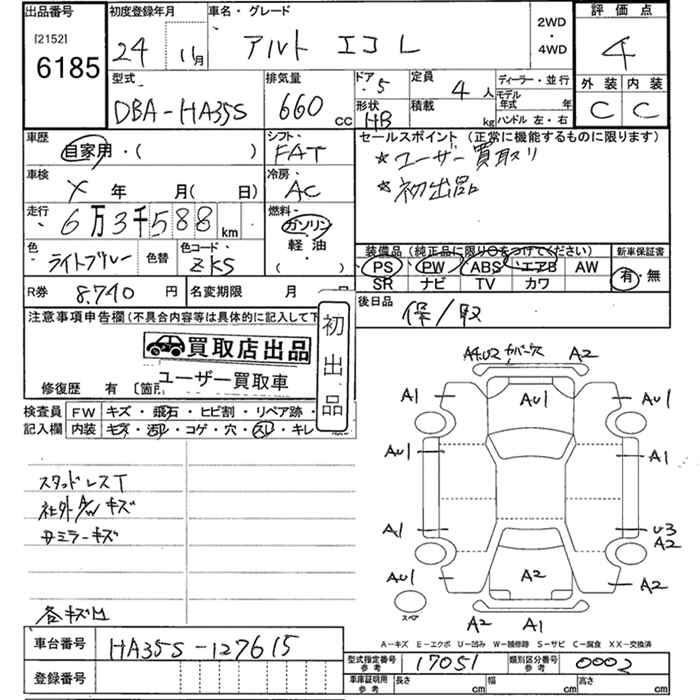 出品番号
[2152]
6185
初度登録年月
24 11月
車名・グレード
アルト エコ L
2WD
・
4WD
評価点
4
型式
DBA-HA35S
排気量
660 cc
ドア・
5
形状
HB
定員
4 人
積載
kg
ディーラー・並行
モデル年式 年
ハンドル 左・右
外装 内装
C C
車歴
自家用・( )
シフト・
FAT
セールスポイント (正常に機能するものに限ります)
☆ユーザー買取り
☆初出品
車検
X 年 月( 日)
冷房・
AC
走行
6万3千588 km
燃料・
ガソリン
軽油
( )
色
ライトブルー
色替
色コード・
ZKS
装備品 (純正品に限り○をつけてください)
PS PW ABS エアB AW
SR ナビ TV カワ
新車保証書
有・無
R券 8,740 円
名変期限 月 日
後日品
保/取
注意事項申告欄(不具合内容等は具体的に記入して下
買取店出品
ユーザー買取車
初出品
修復歴 有 〔箇所
検査員記入欄
FW キズ・飛石・ヒビ割・リペア跡・
内装 キズ・汚レ・コゲ・穴・スレ・キレ
スタッドレスT
社外A/W キズ
ミラーキズ
各キズ凹
A4.U2 カバーナス A2
A1 AU1 AU1
AU1 A1
A1 U3
A2
AU1 A2 A2
スペア
A2 A1
A－キズ E－エクボ U－凹み W－補修跡 S－サビ C－腐食 XX－交換済
車台番号 HA35S-127615
登録番号
型式指定番号
参考
17051
類別区分番号
参考
0002
車庫証明用
参考
長さ cm 幅 cm 高さ cm